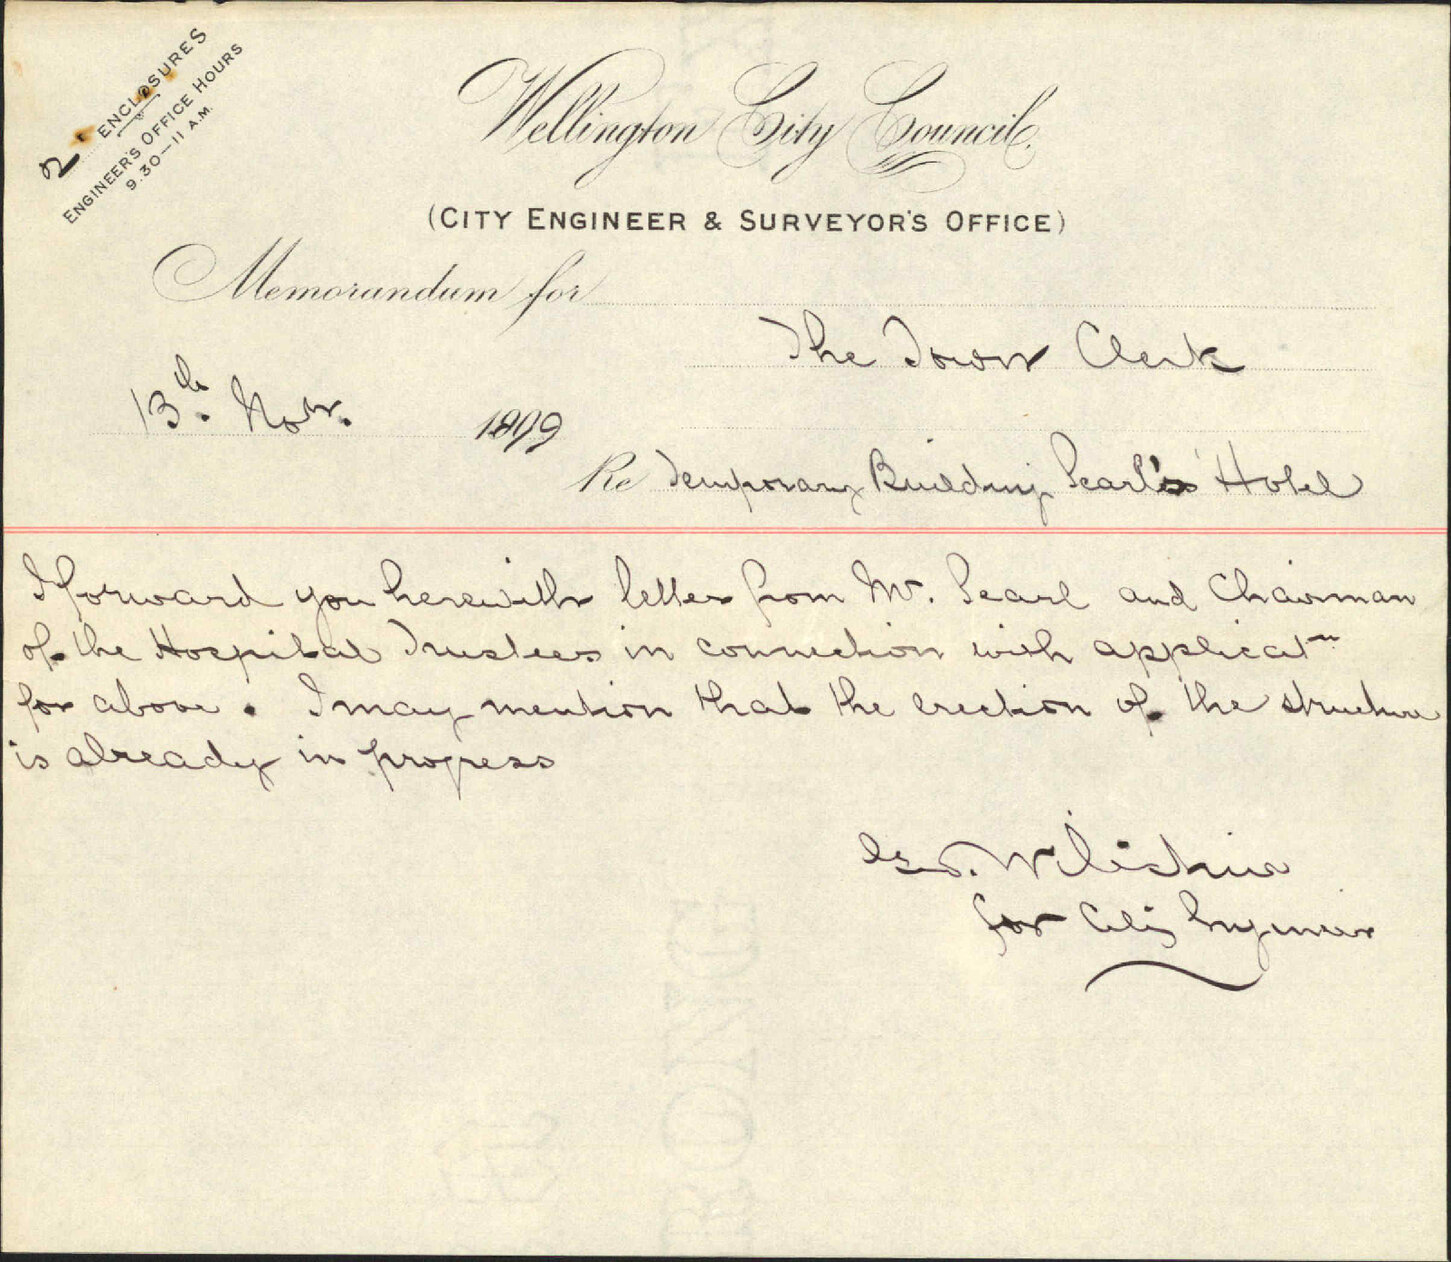 2 ENCLOSURES
ENGINEER'S OFFICE HOURS
9.30—11 A.M.
Wellington City Council.
(CITY ENGINEER & SURVEYOR'S OFFICE)
Memorandum for
The Town Clerk
13th. Novr. 1899
Re Temporary Building Pearl's Hotel
I forward you herewith letter from Mr. Pearl and Chairman
of the Hospital Trustees in connection with applicatn
for above. I may mention that the erection of the structure
is already in progress
for City Engineer